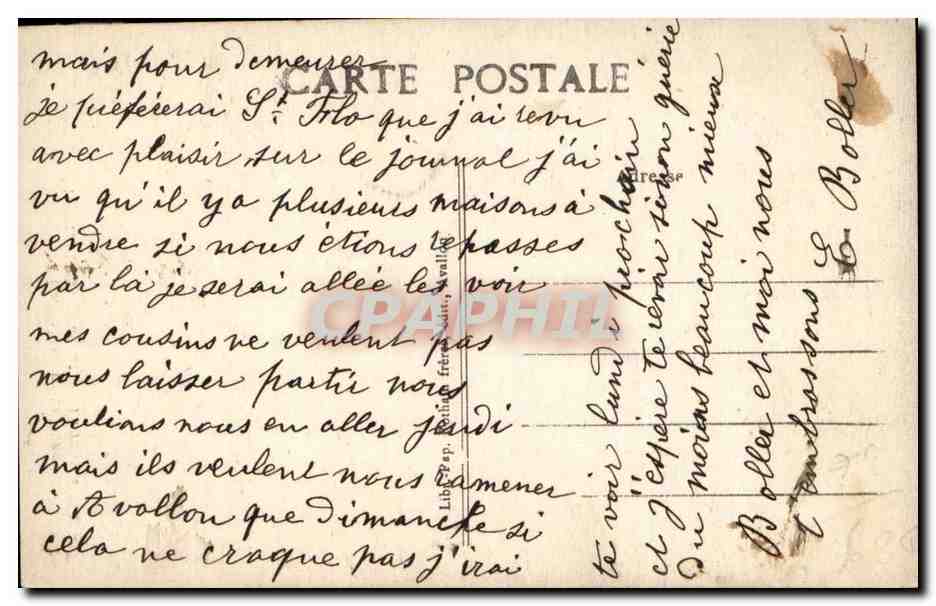 CARTE POSTALE
Adresse
mais pour demeurer
je préfèrerai St. Flo que j'ai revu
avec plaisir sur le journal j'ai
vu qu'il y a plusieurs maisons à
vendre si nous étions repassés
par là je serai allée les voir
mes cousins ne veulent pas
nous laisser partir nous
voulions nous en aller jeudi
mais ils veulent nous ramener
à Avallon que dimanche si
cela ne craque pas j'irai
te voir lundi prochain
et j'espère te revoir sinon guérie
du moins beaucoup mieux
Boller et moi nous
t'embrassons
E. Boller
Lib.-Pap. frères, édit., Avallon
CPAPHIL